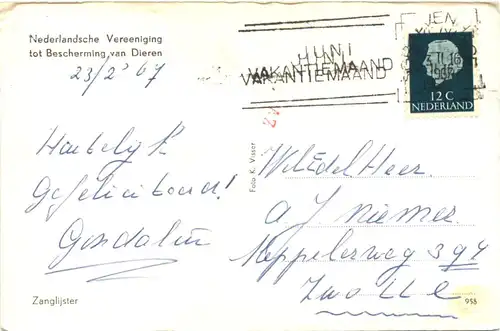 Nederlandsche Vereeniging
tot Bescherming van Dieren
23/2 67
JUNI
VAKANTIEMAAND
12 C
NEDERLAND
Hartelijk
Gefeliciteerd!
Foto K. Visser
WelEdel Heer
a J. Niemer
Meppelerweg
Zwolle
Zanglijster
958